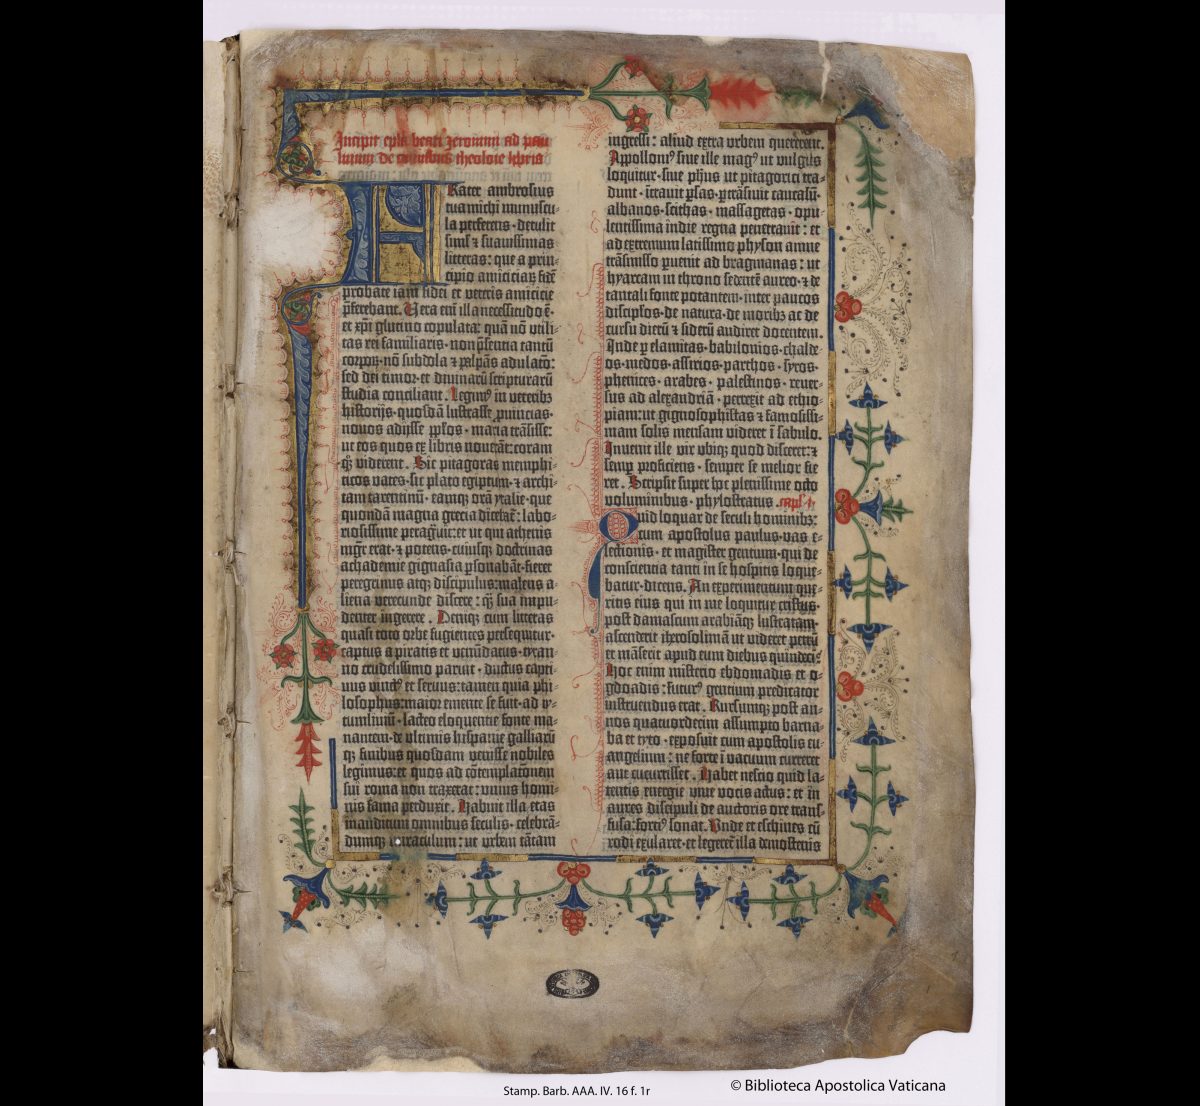 Incipit epl'a beati Jeronimi ad pau
linum de omnibus theologie libris
Frater ambrosius
tua michi munuscu-
la perferens · detulit
simul et suavissimas
litteras: que a prin-
cipio amiciciaꝝ fidē
probate iam fidei et veteris amicicie
p̄ferebant. Vera enī illa necessitudo ē·
et xp̄i glutino copulata: quā nō utili-
tas rei familiaris· non p̄sentia tantū
corpoꝝ· nō subdola ⁊ palpās adulatō:
sed dei timor· et divinarū scripturarū
studia conciliant. Legimꝰ in veteribꝫ
historijs· quosdā lustrasse ꝓvincias·
novos adijsse ppl̄os· maria trāsisse:
ut eos quos ex libris noverāt: coram
qꝫ viderent. Sic pitagoras memphi-
ticos vates· sic plato egiptum· ⁊ archi-
tam tarentinū· eamqꝫ orā ytalie· que
quondā magna grecia dicebat̄: labo-
riosissime peragᵃvit: et ut qui athenis
mgr̄ erat· ⁊ potens· cuiusqꝫ doctrinas
achademie gignasia ꝑsonabāt· fieret
peregrinus atqꝫ discipulus: malens a-
liena verecunde discere: qꝫ sua inpu-
denter ingerere. Deniqꝫ cum litteras
quasi toto orbe fugientes persequitur·
captus a piratis et venūdatus· tyran-
no crudelissimo paruit· ductus capti-
vus vinctꝰ et servus: tamen quia phi-
losophus: maior emente se fuit· ad ty-
tumlivium· lacteo eloquentie fonte ma-
nantem· de ultimis hispanie galliarū
qꝫ finibus quosdam venisse nobiles
legimus: et quos ad cōtemplatōnem
sui roma non traxerat: unius homi-
nis fama perduxit. Habuit illa etas
inauditum omnibus seculis· celebrā-
dumqꝫ miraculum: ut urbem tātam
ingressi: aliud extra urbem quererent.
Appolloniꝰ sive ille magꝰ ut vulgus
loquitur· sive ph̄us ut pitagorici tra-
dunt· ītravit ꝑsas· ꝑtrāsivit caucasū·
albanos· scithas· massagetas· opu-
lentissima indie regna penetravit: et
ad extremum latissimo physon amne
trāsmisso ꝑvenit ad bragmanas: ut
hyarcam in throno sedentē aureo· ⁊ de
tantali fonte potantem· inter paucos
discipl̄os· de natura· de moribꝫ ac de
cursu dierū ⁊ siderū audiret docentem.
Inde ꝑ elamitas· babilonios· chalde-
os· medos· assirios· parthos· syros·
phenices· arabes· palestinos· rever-
sus ad alexandriā· perrexit ad ethio-
piam: ut gignosophistas ⁊ famosissi-
mam solis mensam videret ī sabulo.
Invenit ille vir ubiqꝫ quod disceret: ⁊
semꝑ proficiens· semper se melior fie
ret. Scripsit super hoc plenissime octo
voluminibus· phylostratus. cap̄l'
Quid loquar de seculi hominibꝫ:
cum apostolus paulus· vas e-
lectionis· et magister gentium· qui de
conscientia tanti in se hospitis loque-
batur· dicens. An experimentum que-
ritis eius qui in me loquitur cristus·
post damascum arabiāqꝫ lustratam·
ascenderit iherosolimā ut videret petrū
et māserit apud eum diebus quindecī:
Hoc enim misterio ebdomadis et o-
gdoadis: futurꝰ gentium predicator
instruendus erat. Rursumqꝫ post an-
nos quatuordecim assumpto barna-
ba et tyto· exposuit cum apostolis eu-
angelium: ne forte ī vacuum curreret
aut cucurrisset. Habet nescio quid la-
tentis energie vive vocis actus: et in
aures discipuli de auctoris ore trans-
fusa: fortiꝰ sonat. Unde et eschines cū
rodi exularet· et legeret̄ illa demostenis
Stamp. Barb. AAA. IV. 16 f. 1r
© Biblioteca Apostolica Vaticana